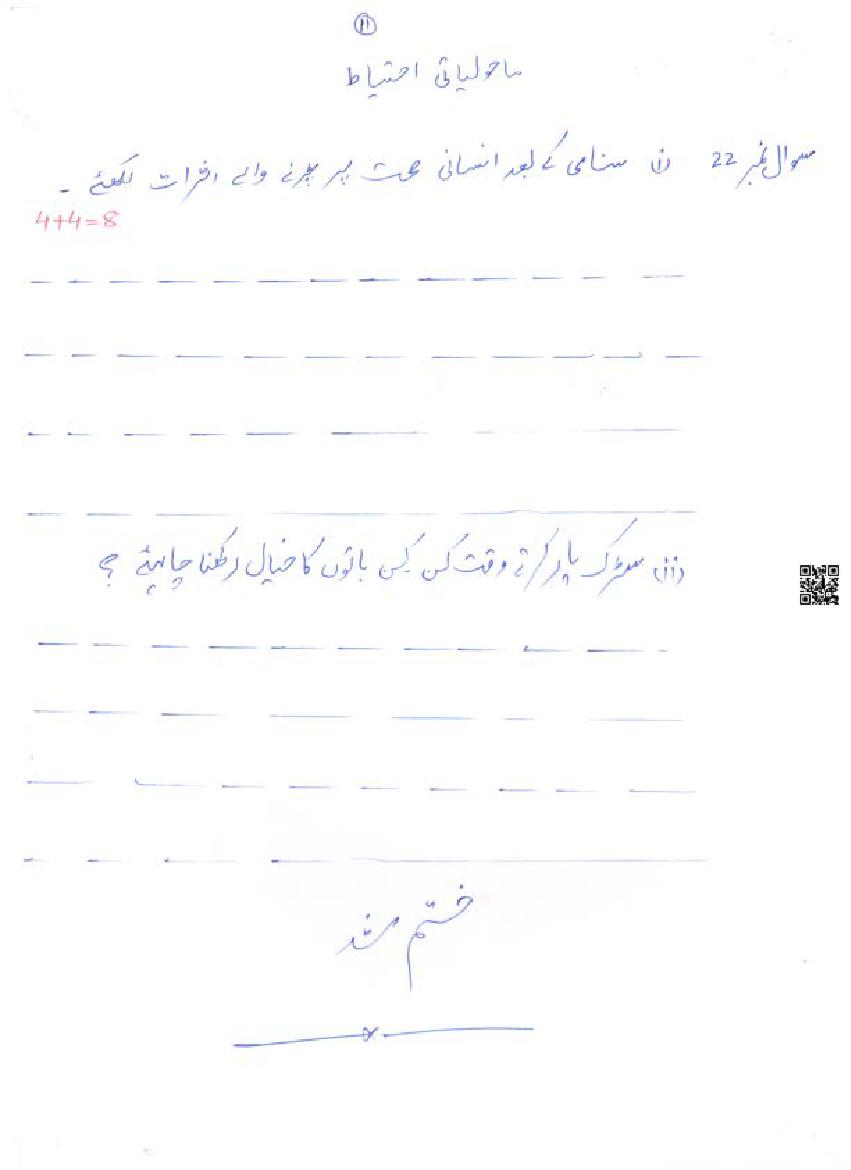 11
ماحولیاتی احتیاط
سوال نمبر 22 (i) سنامی کے بعد انسانی صحت پر پڑنے والے اثرات لکھئے ۔
4+4=8
(ii) سڑک پار کرتے وقت کن کن باتوں کا خیال رکھنا چاہیئے ؟
ختم شد